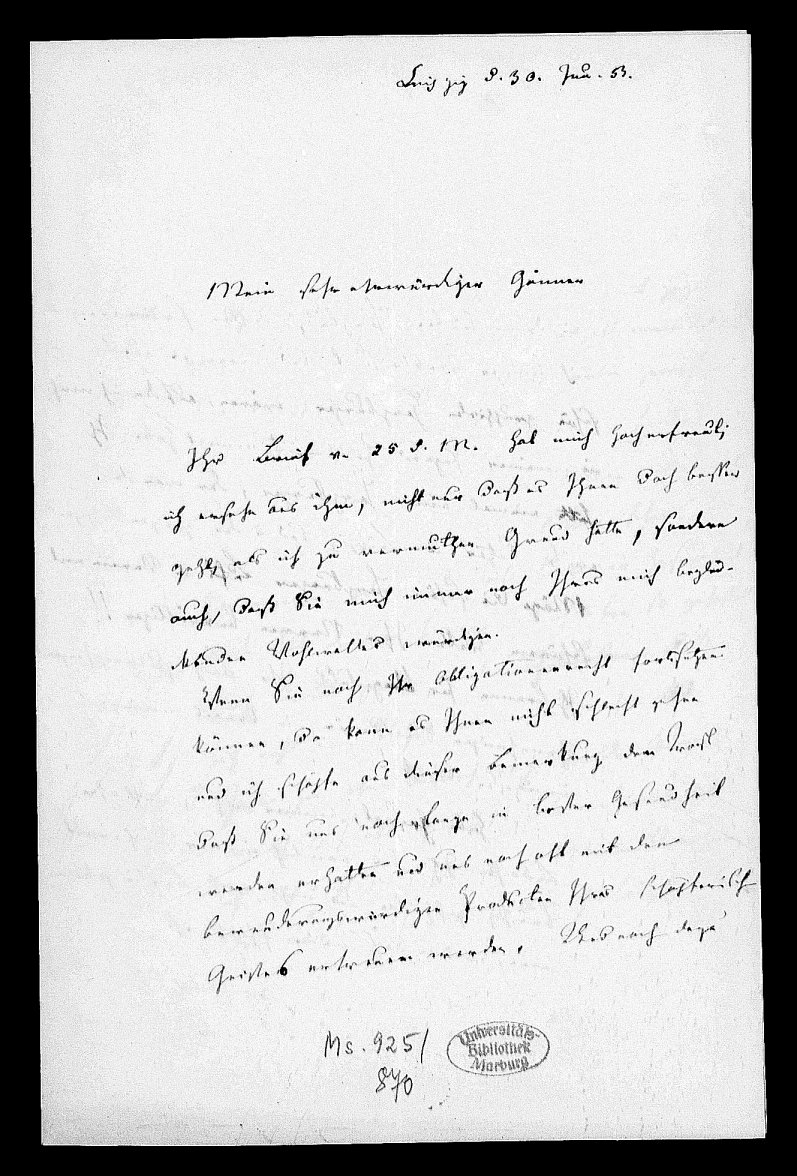 Leipzig d. 30. Jun. 53.
Mein sehr ehrwürdiger Gönner
Ihr Brief v. 25 d. M. hat mich hoch erfreut;
ich ersehe aus ihm, nicht nur daß es Ihnen doch besser
geht, als ich zu vermuthen Grund hatte, sondern
auch, daß Sie mich immer noch Ihres mich beglü-
kenden Wohlwollens würdigen.
Wenn Sie noch Ihr Obligationenrecht fortsetzen
können, da kann es Ihnen nicht schlecht gehen
und ich schöpfe aus dieser Bemerkung den Trost
daß Sie uns noch lange in bester Gesundheit
werden erhalten und uns noch oft mit den
bewunderungswürdigen Producten Ihres schöpferischen
Geistes erfreuen werden. Was noch dazu
Ms. 925/
870
Universitäts-
Bibliothek
Marburg